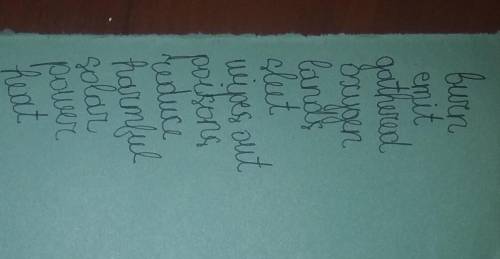 burn
emit
gathered
oxygen
lands
wipes out
poisons
reduce
harmful
solar
power
heat